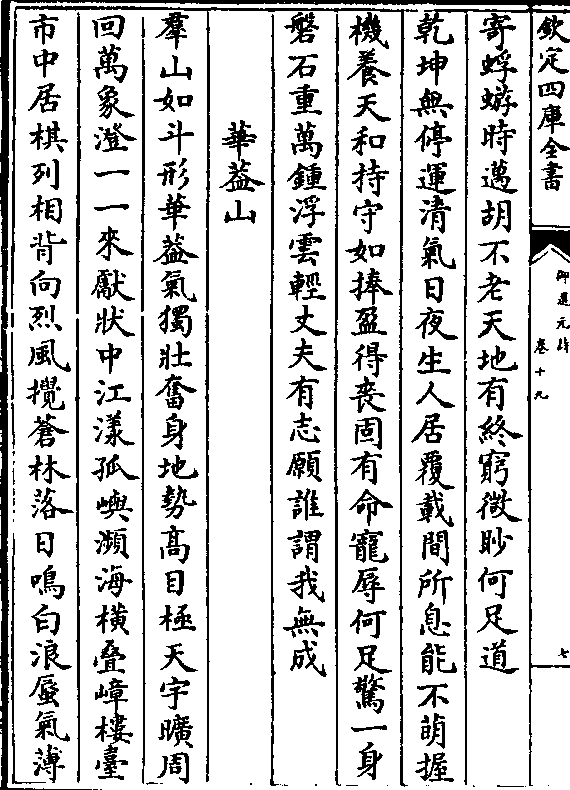 欽定四庫全書
御選元詩
卷十九
七
寄蜉蝣時邁胡不老天地有終窮微眇何足道
乾坤無停運清氣日夜生人居覆載間所息能不萌握
機養天和持守如捧盈得丧固有命寵辱何足驚一身
磐石重萬鍾浮雲輕丈夫有志願誰謂我無成
華葢山
羣山如斗形華葢氣獨壯奮身地勢髙目極天宇曠周
回萬象澄一一來獻狀中江漾孤嶼瀕海橫疊嶂樓臺
市中居棋列相背向烈風攪蒼林落日鳴白浪蜃氣薄